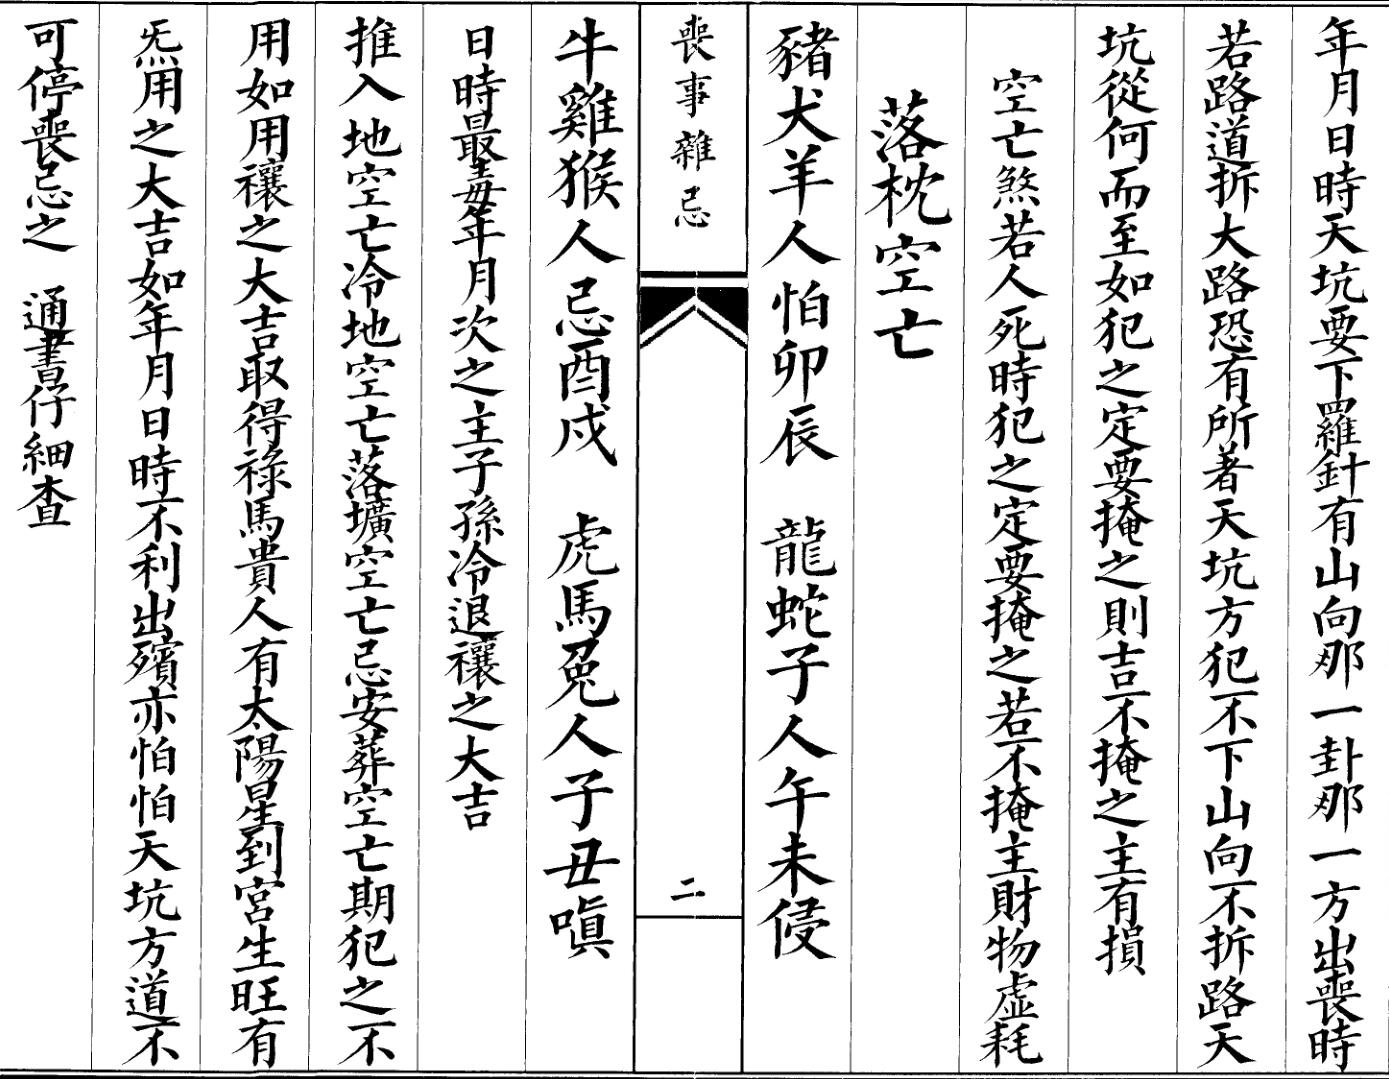 年月日時天坑要下羅針有山向那一卦那一方出喪時
若路道拆大路恐有所著天坑方犯不下山向不拆路天
坑從何而至如犯之定要掩之則吉不掩之主有損
空亡煞若人死時犯之定要掩之若不掩主財物虛耗
落枕空亡
豬犬羊人怕卯辰　龍蛇子人午未侵
喪事雜忌
二
牛雞猴人忌酉戍　虎馬兔人子丑嗔
日時最毒年月次之主子孫冷退禳之大吉
推入地空亡冷地空亡落壙空亡忌安葬空亡期犯之不
用如用禳之大吉取得祿馬貴人有太陽星到宮生旺有
炁用之大吉如年月日時不利出殯亦怕怕天坑方道不
可停喪忌之　通書仔細查